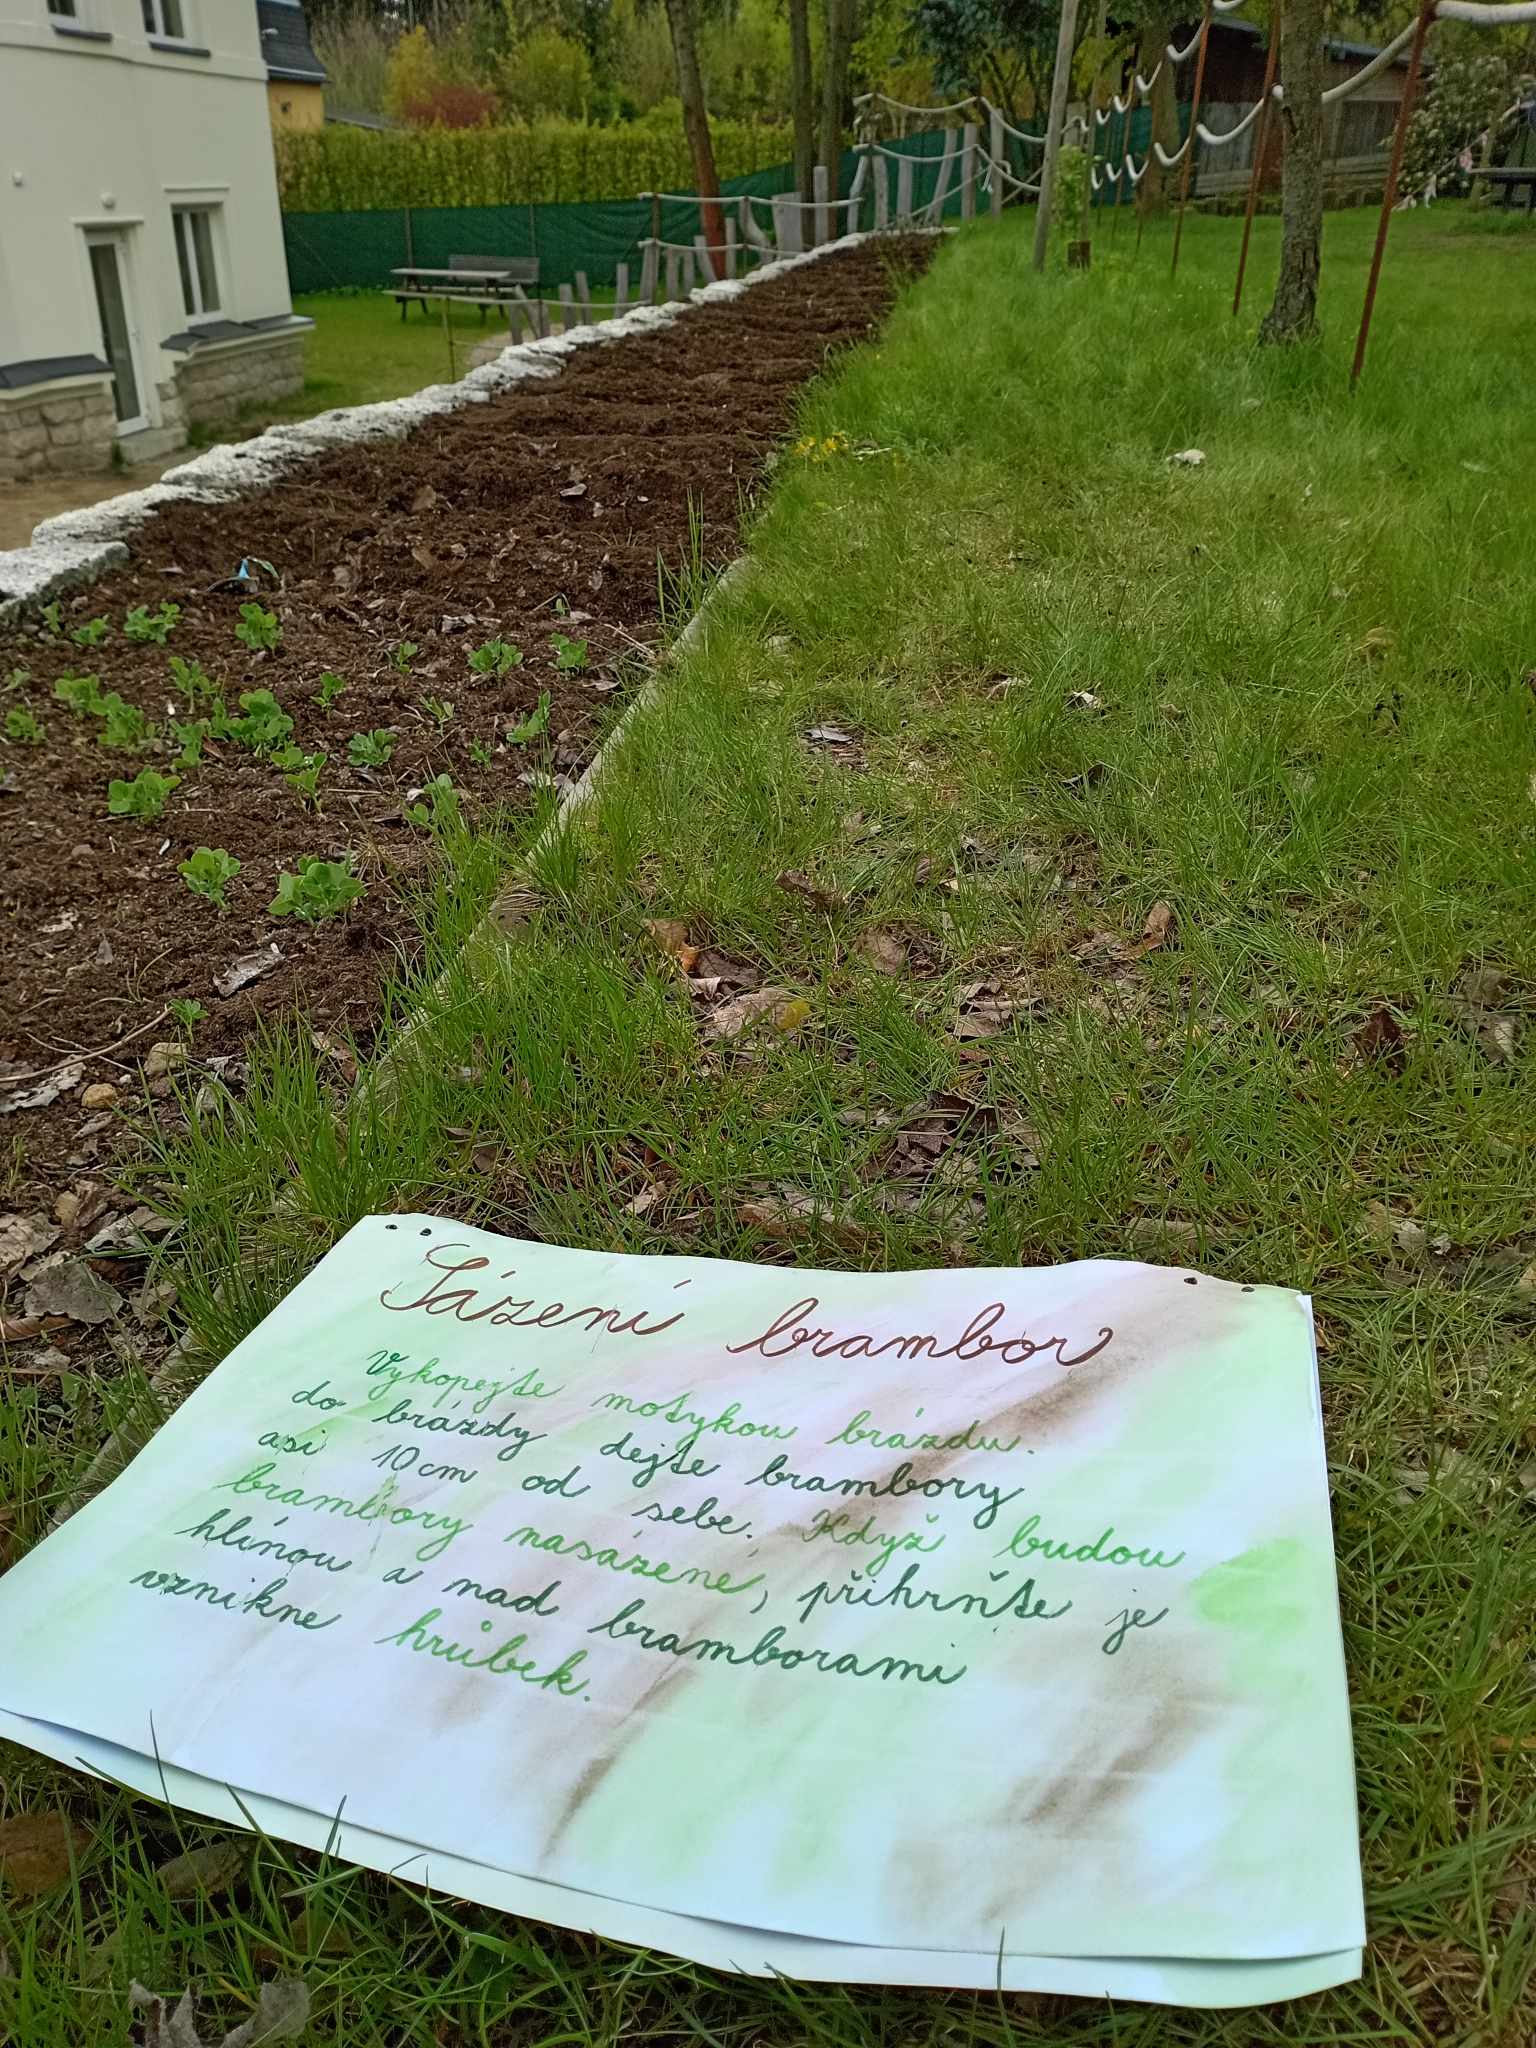 Sázení brambor
Vykopejte motykou brázdu.
do brázdy dejte brambory
asi 10 cm od sebe. Když budou
brambory nasázené, přihrňte je
hlínou a nad bramborami
vznikne hrůbek.